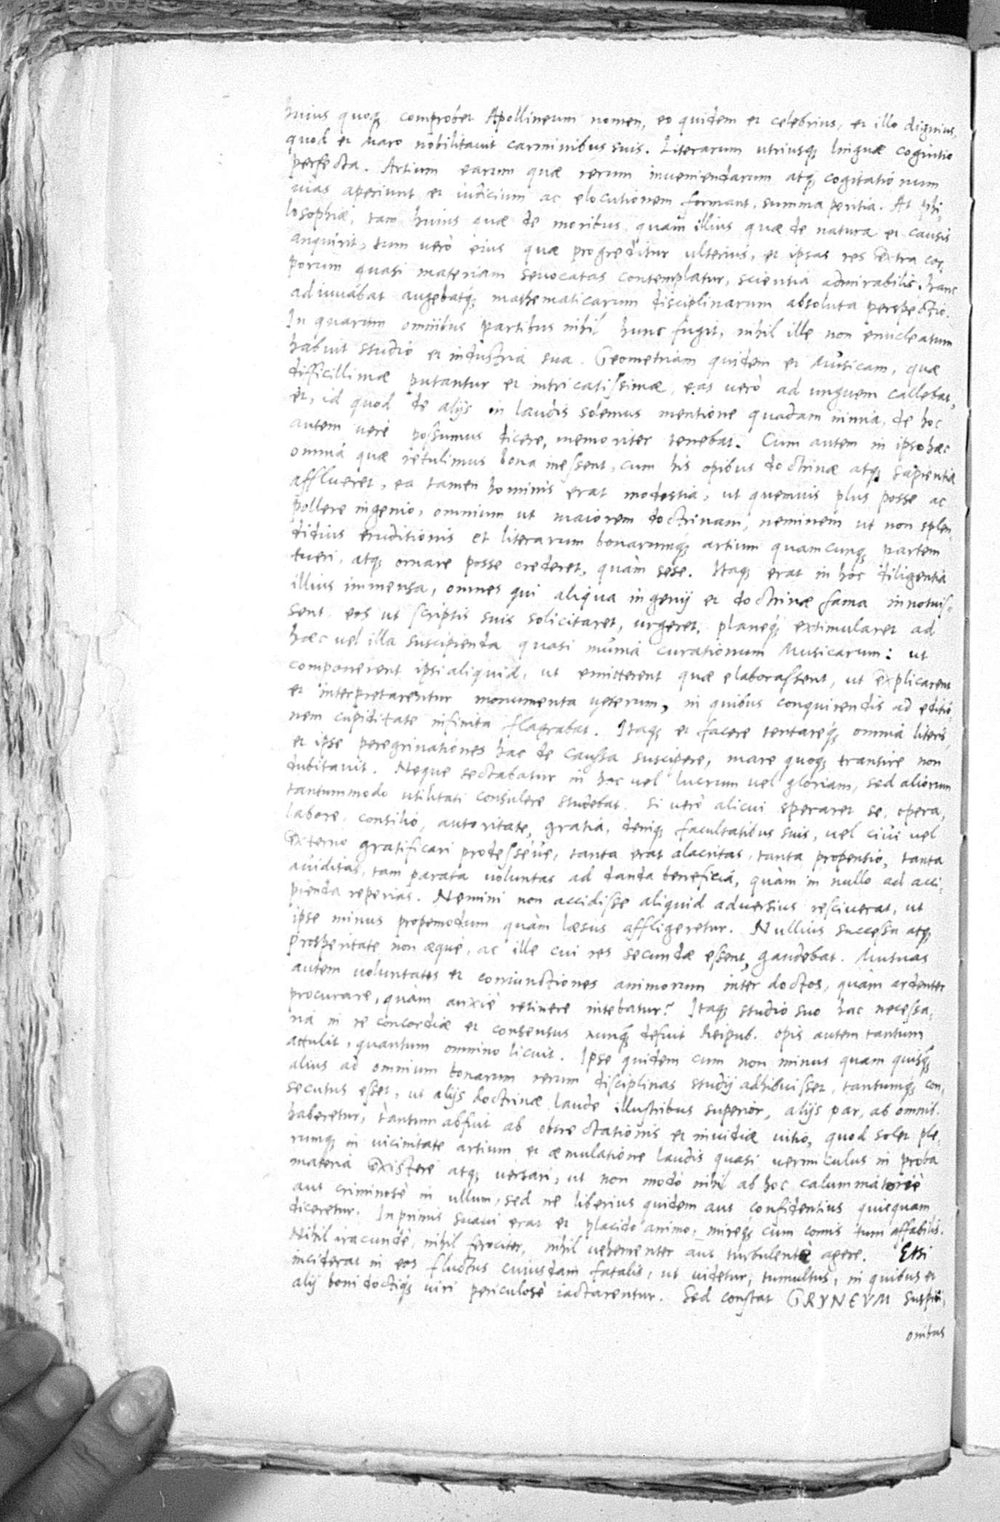 huius quoq; comprobet Apollineum nomen, eo quidem et celebrius, et illo dignius,
quod et Maro nobilitauit carminibus suis. Literarum utriusq; linguæ cognitio
perfecta. Artium earum quæ rerum inueniendarum atq; cogitationum
uias aperiunt et iudicium ac elocutionem formant, summa peritia. At phi,
losophiæ, tam huius quæ de moribus, quàm illius quæ de natura et causis
anquirit, tum vero eius quæ progreditur ulterius, et ipsas res extra cor,
porum quasi materiam seuocatas contemplatur, scientia admirabilis. hanc
adiuuabat augebatq; mathematicarum disciplinarum absoluta perspectio.
In quarum omnibus partibus nihil hunc fugit, nihil ille non enucleatum
habuit studio et industria sua. Geometriam quidem et Musicam, quæ
difficillimæ putantur et intricatissimæ, eas verò ad unguem callebat,
et, id quod de alijs in laudis solemus mentione quadam nimia, de hoc
autem verè possumus dicere, memoriter tenebat. Cùm autem in ipso hæc
omnia quæ retulimus bona inessent, cum his opibus doctrinæ atq; sapientiæ
afflueret, ea tamen hominis erat modestia, ut quemuis plus posse ac
pollere ingenio, omnium ut maiorem doctrinam, neminem ut non splen,
didius eruditionis et literarum bonarumq; artium quamcunq; partem
tueri, atq; ornare posse crederet, quàm sese. Itaq; erat in hoc diligentia
illius immensa, omnes qui aliqua ingenij et doctrinæ fama innotuis,
sent eos ut scriptis suis solicitaret, urgeret, planeq; extimularet ad
hæc vel illa suscipienda quasi munia curationum Musicarum: ut
componerent ipsi aliquid, ut emitterent quæ elaborassent, ut explicarent
et interpretarentur monumenta veterum, in quibus conquirendis ad editio
nem cupiditate infinita flagrabat. Itaq; et facere tentareq; omnia literis,
et ipse peregrinationes hac de caussa suscipere, mare quoq; transire non
dubitauit. Neque sectabatur in hoc vel lucrum vel gloriam, sed aliorum
tantummodo utilitati consulere studebat. Si verò alicui speraret se, opera,
labore, consilio, autoritate, gratia, deniq; facultatibus suis, vel ciui vel
externo gratificari prodesseue, tanta erat alacritas, tanta propensio, tanta
auiditas, tam parata voluntas ad danda beneficia, quàm in nullo ad acci,
pienda reperias. Nemini non accidisse aliquid aduersius resciuerat, ut
ipse minus propemodum quàm læsus affligeretur. Nullius successu atq;
prosperitate non æque, ac ille cui res secundæ essent, gaudebat. Mutuas
autem voluntates et coniunctiones animorum inter doctos, quàm ardenter
procurare, quàm anxiè retinere nitebatur? Itaq; studio suo hac necessa,
ria in re concordiæ et consensus nunq̃ defuit Reipub. opis autem tantum
attulit, quantum omnino licuit. Ipse quidem cum non minus quam quisq̃
alius ad omnium bonarum rerum disciplinas studij adhibuisset, tantumq; con,
secutus esset, ut alijs doctrinæ laude illustribus superior, alijs par, ab omnib.
haberetur, tantum abfuit ab obtrectationis et inuidiæ uitio, quod solet ple,
rumq; in vicinitate artium et æmulatione laudis quasi vermiculus in proba
materia existere atq; versari, ut non modò nihil ab hoc calumniatoriè
aut criminosè in ullum, sed ne liberius quidem aut confidentius quicquam
diceretur. Inprimis suaui erat et placido animo, mireq; cum comis tum affabilis.
Nihil iracundè, nihil ferociter, nihil vehementer aut turbulentè agere. Etsi
inciderat in eos fluctus cuiusdam fatalis, ut videtur, tumultus, in quibus et
alij boni doctiq; viri periculosè iactarentur. Sed constat GRYNEVM suspi,
onibus